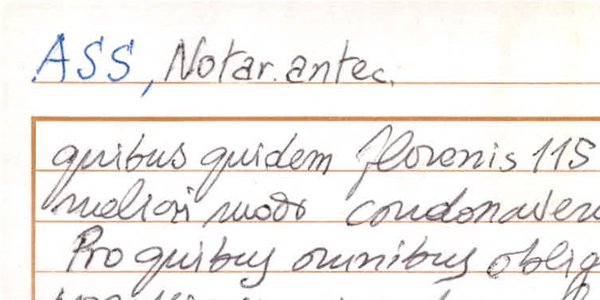 ASS, Notar. antec.
quibus quidem florenis 115
meliori modo condonaver
Pro quibus omnibus oblig